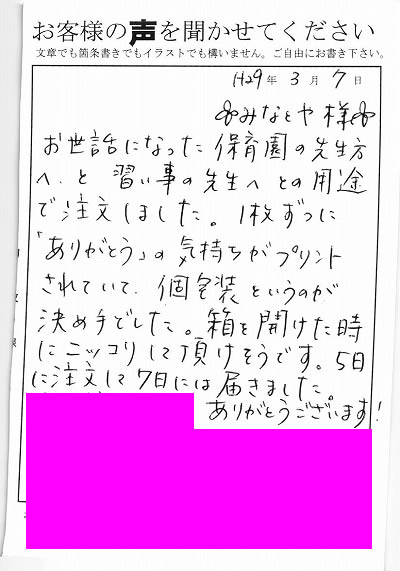 お客様の声を聞かせてください
文章でも箇条書きでもイラストでも構いません。ご自由にお書き下さい。
H29年 3月 7日
みなとや 様
お世話になった 保育園の先生方
へ.と 習い事の先生へ との用途
で注文しました。1枚ずつに
「ありがとう」の気持ちがプリント
されていて、個包装というのが
決め手でした。箱を開けた時
にニッコリして頂けそうです。5日
に注文して7日には届きました。
ありがとうございます!